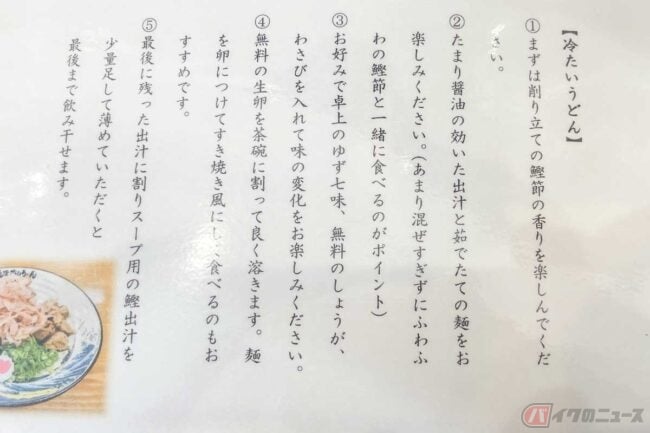 【冷たいうどん】
①まずは削り立ての鰹節の香りを楽しんでくだ
さい。
②たまり醤油の効いた出汁と茹でたての麺をお
楽しみください。(あまり混ぜすぎずにふわふ
わの鰹節と一緒に食べるのがポイント)
③お好みで卓上のゆず七味、無料のしょうが、
わさびを入れて味の変化をお楽しみください。
④無料の生卵を茶碗に割って良く溶きます。麺
を卵につけてすき焼き風にし 食べるのもお
すすめです。
⑤最後に残った出汁に割りスープ用の鰹出汁を
少量足して薄めていただくと
最後まで飲み干せます。
バイクのニュース